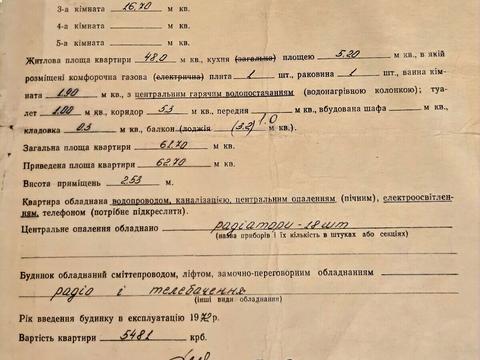 3-а кімната 16.70 м кв.
4-а кімната м кв.
5-а кімната м кв.
Житлова площа квартири 48.0 м кв., кухня (загальна) площею 5.20 м кв., в якій
розміщені комфорочна газова (електрична) плита 1 шт., раковина 1 шт., ванна кім-
ната 1.90 м кв., з центральним гарячим водопостачанням (водонагрівною колонкою); туа-
лет 1.00 м кв., коридор 5.3 м кв., передня м кв., вбудована шафа м кв.,
кладовка 0.3 м кв., балкон (лоджія (3.2) 1.0 м кв.).
Загальна площа квартири 61.70 м кв.
Приведена площа квартири 62.70 м кв.
Висота приміщень 2.53 м.
Квартира обладнана водопроводом, каналізацією, центральним опаленням (пічним), електроосвітлен-
ням, телефоном (потрібне підкреслити).
Центральне опалення обладнано радіатори - 18 шт
(назва приборів і їх кількість в штуках або секціях)
Будинок обладнаний сміттепроводом, ліфтом, замочно-переговорним обладнанням
радіо і телебачення
(інші види обладнання)
Рік введення будинку в експлуатацію 1972 р.
Вартість квартири 5481 крб.